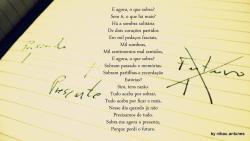 E agora, o que sobra?
Sem ti, o que há mais?
Há a sombra solitária
De dois corações partidos
Em mil pedaços fracos,
Mil sombras,
Mil sentimentos mal contidos,
E agora, o que sobra?
Sobram passado e memórias
Sobram partilhas e recordação
Estórias!
Sim, tens razão.
Tudo acaba por sobrar,
Tudo acaba por ficar a mais,
Nesse dia quando já não
Precisamos de tudo.
Sobra-me agora o presente,
Porque perdi o futuro.
Passado
Presente
Futuro
by nikou antunes